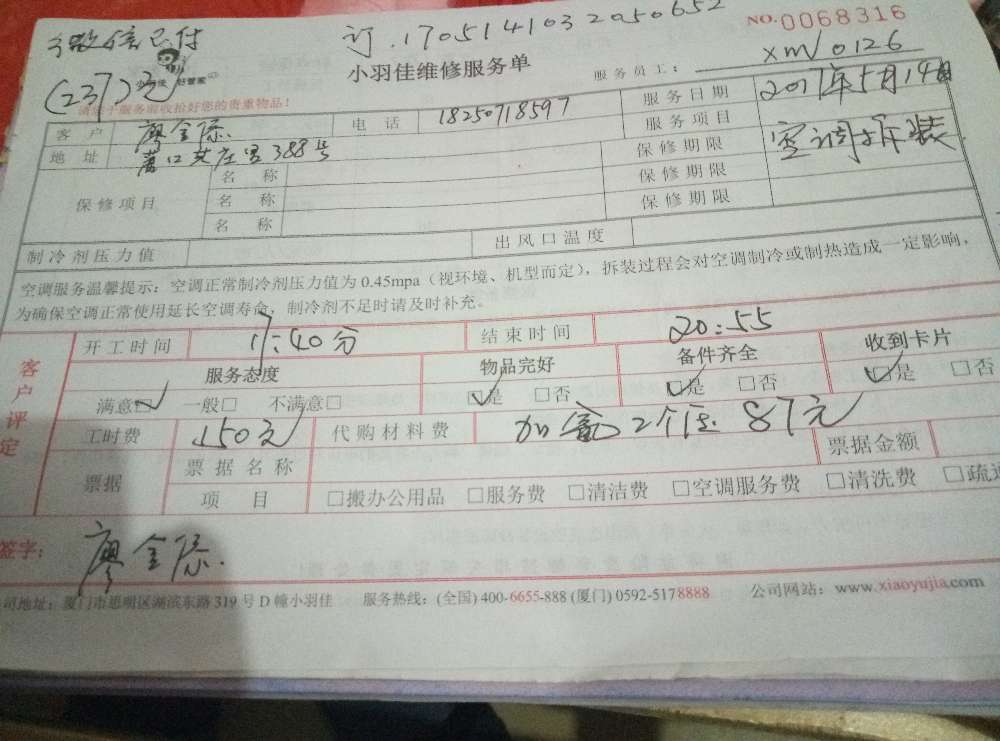 微信已付 订.1705141032050652 NO.0068316
(237)元 小羽佳 好管家 小羽佳维修服务单 服务员工: xm/0126
请您于服务前收拾好您的贵重物品!
客户 廖金添 电话 18250718597 服务日期 2017年5月14日
地址 388号 服务项目 空调拆装
保修项目 名称 保修期限
名称 保修期限
名称 保修期限
制冷剂压力值 出风口温度
空调服务温馨提示:空调正常制冷剂压力值为 0.45mpa(视环境、机型而定),拆装过程会对空调制冷或制热造成一定影响,
为确保空调正常使用延长空调寿命,制冷剂不足时请及时补充。
客户评定 开工时间 17:40分 结束时间 20:55
服务态度 物品完好 备件齐全 收到卡片
满意☑ 一般□ 不满意□ ☑是 □否 ☑是 □否 ☑是 □否
工时费 150元 代购材料费 加氟2个压 87元 票据金额
票据 票据名称
项目 □搬办公用品 □服务费 □清洁费 □空调服务费 □清洗费 □疏通
签字: 廖金添
司地址:厦门市思明区湖滨东路 319 号 D 幢小羽佳 服务热线:(全国) 400-6655-888 (厦门) 0592-5178888 公司网站:www.xiaoyujia.com